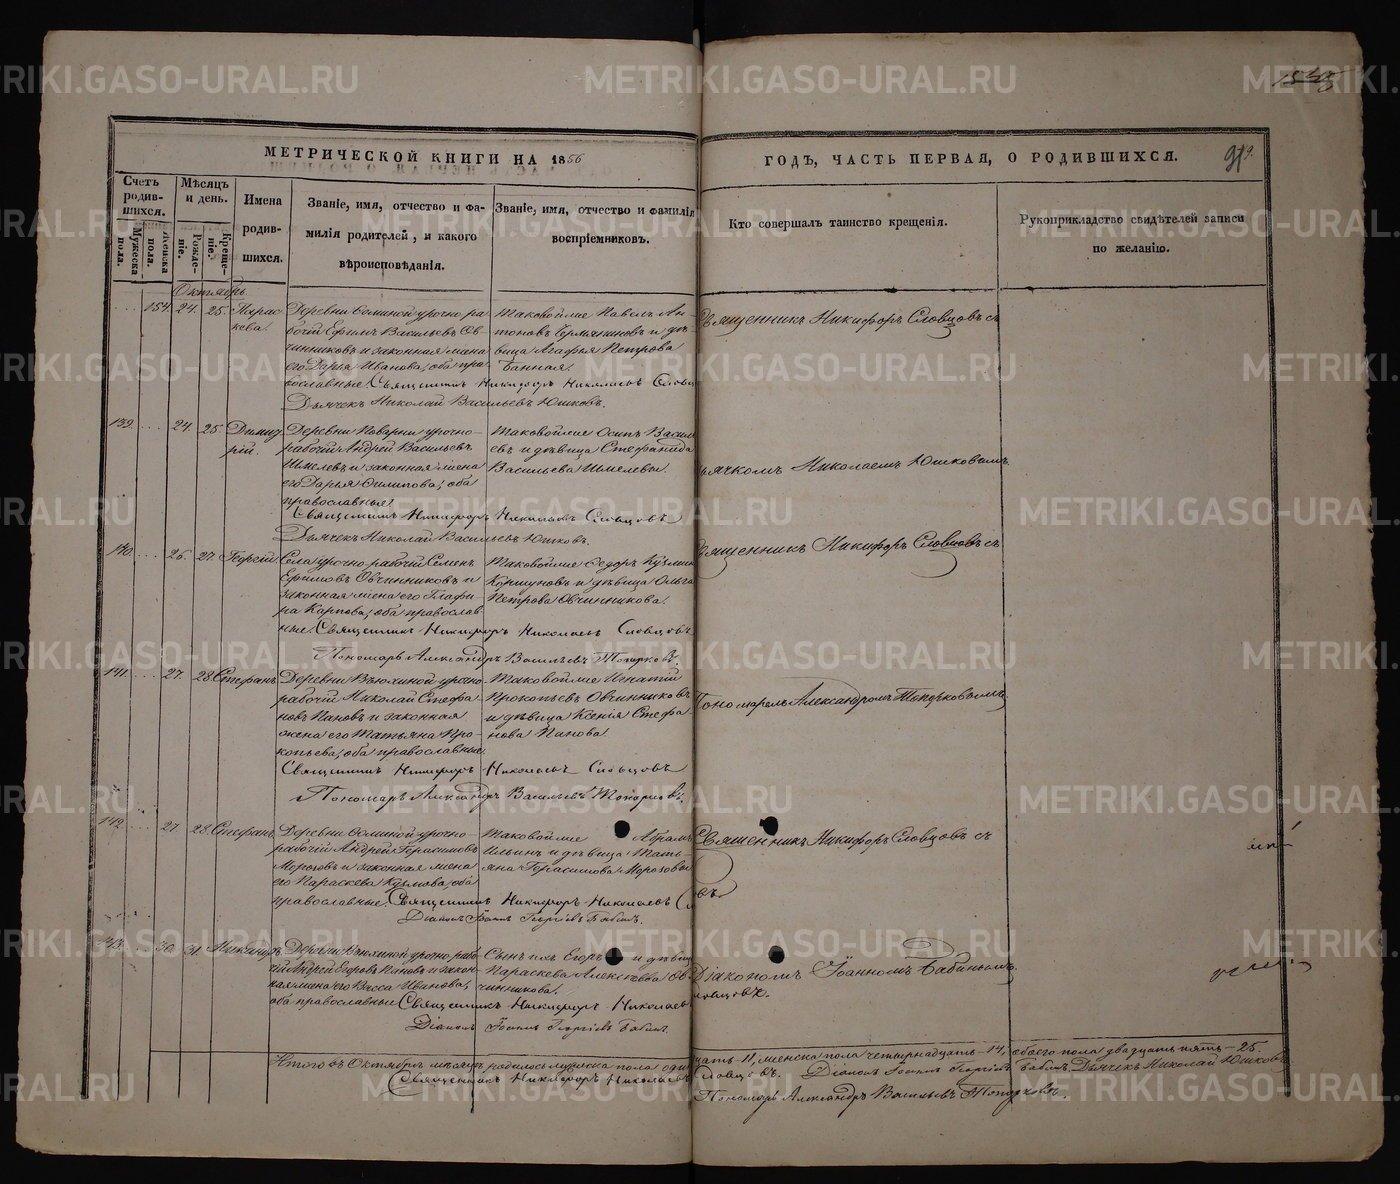 1538
МЕТРИЧЕСКОЙ КНИГИ НА 1856 ГОДЪ, ЧАСТЬ ПЕРВАЯ, О РОДИВШИХСЯ.
Счетъ родив- шихся.
Мужеска пола.
Женска пола.
Мѣсяцъ и день.
Рожде- нiе.
Креще- нiе.
Имена родив- шихся.
Званіе, имя, отчество и фа- милія родителей, и какого вѣроисповѣданія.
Званіе, имя, отчество и фамилія воспріемниковъ.
Кто совершалъ таинство крещенія.
Рукоприкладство свидѣтелей записи по желанію.
Октябрь
154. 24. 25. Парас
кева.
Деревни урочно ра
бочій Ефимъ Васильевъ Ов
чинниковъ и законная жена
его Дарья Иванова, оба пра
вославные. Священникъ Никифоръ Николаевъ Словц
Дьячекъ Николай Васильевъ Юшковъ.
Таковойже Павелъ Ан
тоновъ и дѣ
вица Агафья Петрова
Банная.
Священникъ Никифоръ Словцовъ съ
139. 24. 25. Димит
рій.
Деревни урочно-
рабочій Андрей Васильевъ
Шмелевъ и законная жена
его Дарья Филипова; оба
православные.
Священникъ Никифоръ Николаевъ Словцовъ
Дьячекъ Николай Васильевъ Юшковъ.
Таковойже Осипъ Василь
евъ и дѣвица Стефанида
Васильева Шмелевы.
дьячкомъ Николаемъ Юшковымъ.
140. 26. 27. Георгій.
Села урочно рабочій Семенъ
Ефимовъ Овчинниковъ и
законная жена его Глафи
ра Карпова; оба православ
ные. Священникъ Никифоръ Николаевъ Словцовъ
Пономарь Александръ Васильевъ Топорковъ.
Таковойже Ѳедоръ Кузмин
Коршуновъ и дѣвица Ольга
Петрова Овчинникова.
Священникъ Никифоръ Словцовъ съ
141. 27. 28. Стефанъ.
Деревни Вьюхиной урочно-
рабочій Николай Стефа
новъ Пановъ и законная
жена его Татьяна Про-
копьева, оба православные.
Священникъ Никифоръ Николаевъ Словцовъ
Пономарь Александръ Васильевъ Топорковъ.
Таковойже Игнатій
Прокопьевъ Овчинниковъ
и дѣвица Ксенія Стефа
нова Панова.
Пономаремъ Александромъ Топорковымъ.
142. 27. 28. Стефанъ.
Деревни урочно-
рабочій Андрей Герасимовъ
Морозовъ и законная жена
его Параскева Кузмова, оба
православные. Священникъ Никифоръ Николаевъ Сл
овъ
Діаконъ Іоаннъ Георгіевъ Бабинъ.
Таковойже Абрамъ
Ильинъ и дѣвица Тать-
яна Герасимова Морозовы
Священникъ Никифоръ Словцовъ съ
143. 30. 31.
Деревни Вьюхиной урочно-раб
чій Андрей Егоровъ Пановъ и закон-
ная жена его Васса Иванова,
оба православные. Священникъ Никифоръ Николаевъ
ловцовъ.
Діаконъ Іоаннъ Георгіевъ Бабинъ.
Сынъ ихъ Егоръ и дѣвица
Параскева Алексѣева Ов
чинникова.
Діакономъ Іоанномъ Бабинымъ.
Итого въ Октябрѣ мѣсяцѣ родилось мужеска пола один
цать-11, женска пола четырнадцать-14, обоего пола двадцать пять-25.
Священникъ Никифоръ Николаевъ Словцовъ. Діаконъ Іоаннъ Георгіевъ Бабинъ. Дьячекъ Николай Юшковъ
Пономарь Александръ Васильевъ Топорковъ.
METRIKI.GASO-URAL.RU